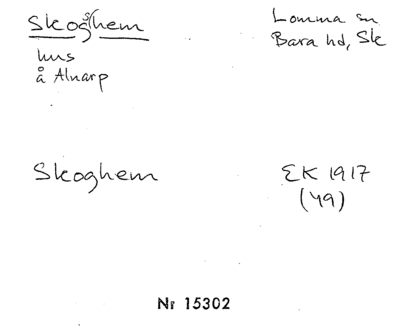 Skogshem
Lomma sn
Bara hd, Sk
hus
å Alnarp
Skoghem
EK 1917
(49)
Nr 15302